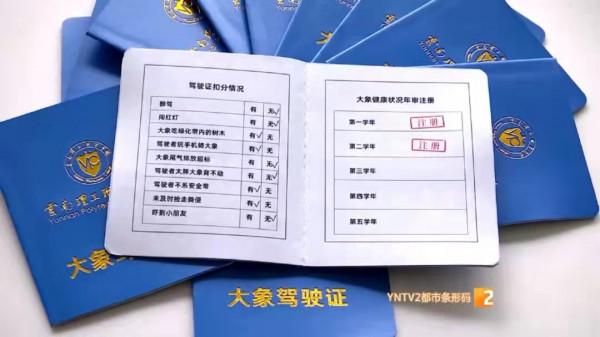 驾驶证扣分情况
醉驾 有 无√
闯红灯 有 无√
大象吃绿化带内的树木 有√ 无
驾驶者玩手机骑大象 有√ 无
大象尾气排放超标 有 无√
驾驶者太胖大象背不动 有 无√
驾驶者不系安全带 有√ 无
未及时捡走粪便 有√ 无
吓到小朋友 有 无√
大象健康状况年审注册
第一学年 注册
第二学年 注册
第三学年
第四学年
第五学年
云南理工
Yunnan Polyte
大象
大象驾驶证
YNTV2都市条形码 2